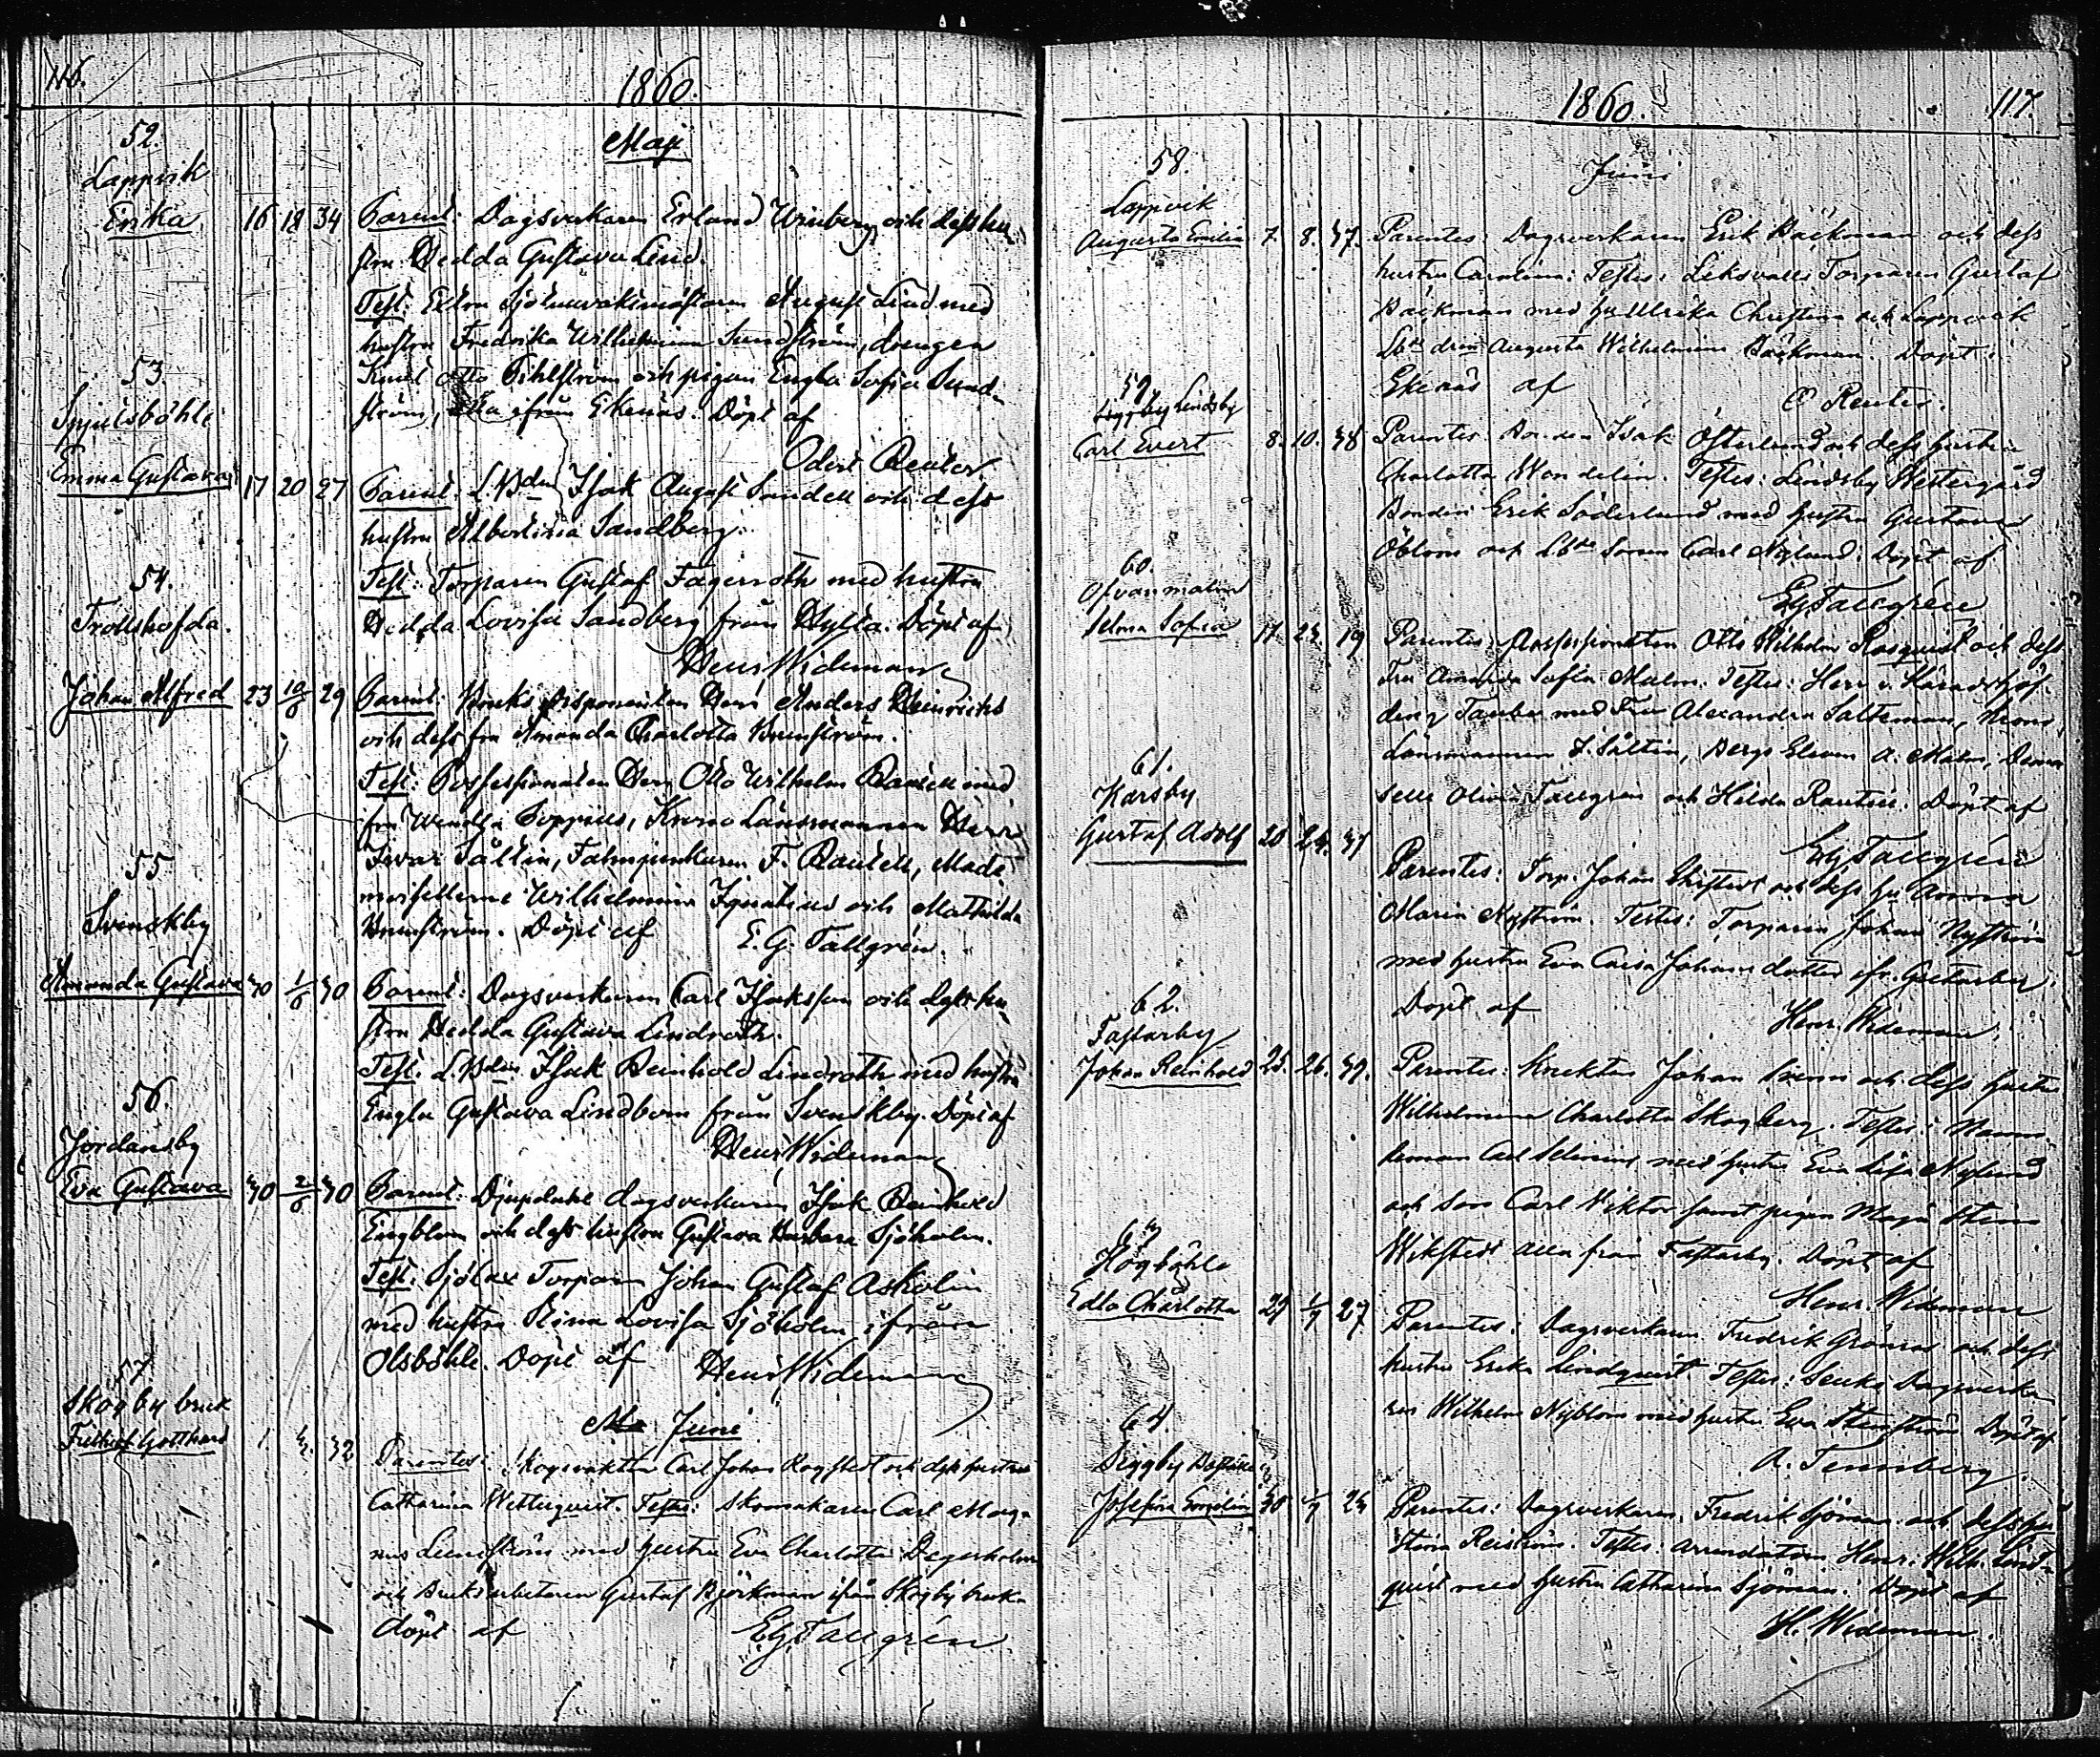 116.
1860.
Maji
52.
Lappvik
Erika 16 18 34
Parent: Dagsverkaren Erland Winberg och dess hu-
stru Hedda Gustava Lind.
Test: Extra August Lind med
hustru Fredrika Wilhelmina Sundström, drengen
Knut Otto Pihlström och pigan Engla Sofia Sund-
ström, alla ifrån Ekenäs. Döpt af
Odert Reuter
53
Spjutsböhle
Emma Gustava 17 20 27
Parent: L.Bdn Isak August Sandell och dess
hustru Albertina Sandberg.
Test: Torparen Gustaf Fagerroth med hustru
Hedda Lovisa Sandberg från Hylta. Döpt af
Henr Wideman
54.
Trollshofda.
Johan Alfred 23 10/6 29
Parent: Bruks disponenten Herr Anders Heinrichs
och dess fru Amanda Charlotta Brunström.
Test: Possessionaten Herr Otto Wilhelm Rautell med
fru Wendla Poppius, Krono Länsmannen Herr
Ivar Sältin, Fahnjunkaren F. Rautell, Made-
moisellerne Wilhelmina Ignatius och Mathilda
Brunström. Döpt af E. G. Tallgrén.
55
Svenskby
Amanda Gustava 30 1/6 30
Parent: Dagsverkaren Carl Isaksson och dess hu-
stru Hedda Gustava Lindroth.
Test. L.Bdn Isak Reinhold Lindroth med hustru
Engla Gustava Lindbom från Svenskby. Döpt af
Henr Wideman
56.
Jordansby
Eva Gustava 30 2/6 30
Parent: Djupdahl dagsverkaren Isak Reinhold
Engblom och dess hustru Gustava Barbara Sjöholm.
Test. Sjölax Torparen Johan Gustaf Askolin
med hustru Stina Lovisa Sjöholm ifrån
Olsböhle. Döpt af Henr Wideman
Juni
57
Skogby bruk
Frithiof Gotthard 1 3. 32
Parentes: Skogvaktar Carl Johan Rogstedt och dess hustru
Catharina Wetterquist. Testes: Skomakaren Carl Mag-
nus Lundström med hustru Eva Charlotta Degerholm
och Bruksarbetaren Gustaf Björkman ifrån Skogby bruk.
döpt af EGTallgrén
1860.
117.
Juni
58.
Lappvik
Augusta Emilia 7. 8. 37.
Parentes: Dagsverkaren Erik Bäckman och dess
hustru Carolina: Testes: Leksvalls Torparen Gustaf
Bäckman med hu Ulrika Christina och Lappvik
Lbds drn Augusta Wilhelmina Bäckman. Döpt i
Ekenäs af O Reuter.
59.
Lindsby
Carl Evert 8. 10. 38
Parentes: Bonden Isak Österlund och dess hustru
Charlotta Wendelin. Testes: Lindsby Westergård
Bonden Erik Söderlund med hustru Gustava
Öblom och Lbds Sonen Carl Nylund. Döpt af
EGTallgrén
60.
Ofvanmalm
Selma Sofia 17. 23. 19
Parentes: Possessionaten Otto Wilhelm Rosquist och dess
Fru Amanda Sofia Malm. Testes: Herr v. Häradshöf-
ding Tauber med Fru Alexandra Salteman, Krono
Länsmannen I. Sältin, Bergs Eleven A. Malm, Dema
selle Olivia Tallgren och Hilda Rautell: Döpt af
EGTallgrén
61.
Karsby
Gustaf Adolf 20 24. 31
Parentes: Torp. Johan och dess hu Anna
Maria Nyström. Testes: Torparen Johan Nyström
med hustru Eva Caisa Johans dotter ifr. Gretarby.
Döpt af Henr. Wideman.
62.
Fastarby
Johan Reinhold 25. 26. 39.
Parentes: Knekten Johan Svenn och dess hustru
Wilhelmina Charlotta Skogberg. Testes:
Carl med hustru Eva Lisa Nylund
och Son Carl Wiktor samt pigan Maja Stina
Wikstedt alla från Fastarby. Döpt af
Henr. Wideman
63
Högböhle
Edla Charlotta 29 1/7 27
Parentes: Dagsverkaren Fredrik Grönros och dess
hustru Erika Lindquist Testes: Dagsverka
ren Wilhelm Nyblom med hustru Eva Döpt af
A. Tennberg.
64.
Seggby
Josefina Emelia 30 1/7 23
Parentes: Dagsverkaren Fredrik Sjöman och dess hu
Stina Reiström. Testes: Arrendatorn Henr. Wilh. Lind-
quist med hustru Catharina Sjöman. Döpt af
H. Wideman.